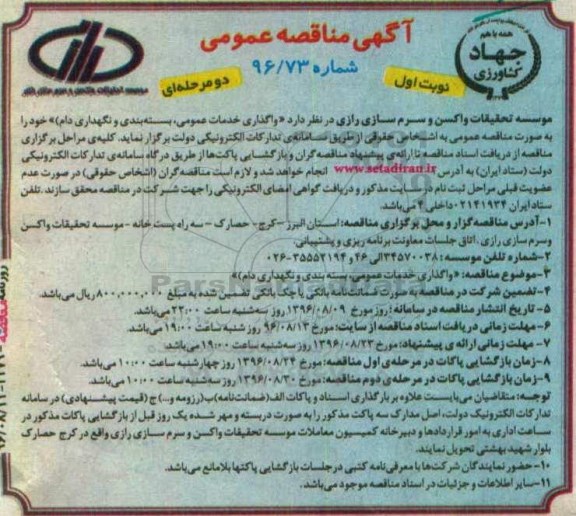 همه با هم
جهاد
کشاورزی
آگهی مناقصه عمومی
شماره ۹۶/۷۳
نوبت اول
دو مرحله‌ای
موسسه تحقیقات واکسن و سرم سازی رازی در نظر دارد «واگذاری خدمات عمومی، بسته‌بندی و نگهداری دام)» خود را
به صورت مناقصه عمومی به اشخاص حقوقی از طریق سامانه‌ی تدارکات الکترونیکی دولت برگزار نماید. کلیه‌ی مراحل برگزاری
مناقصه از دریافت اسناد مناقصه تا ارائه‌ی پیشنهاد مناقصه‌گران و بازگشایی پاکت‌ها از طریق درگاه سامانه‌ی تدارکات الکترونیکی
دولت (ستاد ایران) به آدرس www.setadiran.ir انجام خواهد شد و لازم است مناقصه‌گران (اشخاص حقوقی) در صورت عدم
عضویت قبلی مراحل ثبت نام در سایت مذکور و دریافت گواهی امضای الکترونیکی را جهت شرکت در مناقصه محقق سازند. تلفن
ستاد ایران ۲۱۴۱۹۳۴-داخلی ۴ می‌باشد.
۱-آدرس مناقصه‌گزار و محل برگزاری مناقصه: استان البرز -کرج- حصارک - سه راه پست خانه - موسسه تحقیقات واکسن
و سرم سازی رازی . اتاق جلسات معاونت برنامه ریزی و پشتیبانی.
۲-شماره تلفن موسسه: ۳۴۵۷۰۰۳۸ الی ۴۶ و ۳۵۵۵۲۱۹۴-۰۲۶
۳-موضوع مناقصه: «واگذاری خدمات عمومی، بسته بندی و نگهداری دام)»
۴-تضمین شرکت در مناقصه به صورت ضمانت‌نامه بانکی یا چک بانکی تضمین شده به مبلغ ۸۰۰,۰۰۰,۰۰۰ ریال می‌باشد.
۵-تاریخ انتشار مناقصه در سامانه: روز مورخ ۱۳۹۶/۰۸/۰۹ روز سه‌شنبه ساعت ۲۲:۰۰ می‌باشد.
۶-مهلت زمانی دریافت اسناد مناقصه از سایت: مورخ ۹۶/۰۸/۱۳ روز شنبه ساعت ۱۹:۰۰ می‌باشد.
۷-مهلت زمانی ارائه ی پیشنهاد: مورخ ۱۳۹۶/۰۸/۲۳ روز سه شنبه ساعت ۱۹:۰۰ می‌باشد.
۸-زمان بازگشایی پاکات در مرحله‌ی اول مناقصه: مورخ ۱۳۹۶/۰۸/۲۴ روز چهارشنبه ساعت ۱۰:۰۰ می‌باشد.
۹-زمان بازگشایی پاکات در مرحله‌ی دوم مناقصه: مورخ ۱۳۹۶/۰۸/۳۰ روز سه‌شنبه ساعت ۱۰:۰۰ می‌باشد.
توجه: متقاضیان می‌بایست علاوه بر بارگذاری اسناد و پاکات الف (ضمانت‌نامه) ب(رزومه و...) ج (قیمت پیشنهادی) در سامانه
تدارکات الکترونیک دولت، اصل مدارک سه پاکت مذکور را به صورت دربسته و مهر شده یک روز قبل از بازگشایی پاکات مذکور در
ساعت اداری به امور قراردادها و دبیرخانه کمیسیون معاملات موسسه تحقیقات واکسن و سرم سازی رازی واقع در کرج حصارک
بلوار شهید بهشتی تحویل نمایند.
۱۰-حضور نمایندگان شرکت‌ها با معرفی‌نامه کتبی در جلسات بازگشایی پاکتها بلامانع می‌باشد.
۱۱-سایر اطلاعات و جزئیات در اسناد مناقصه موجود می‌باشد.